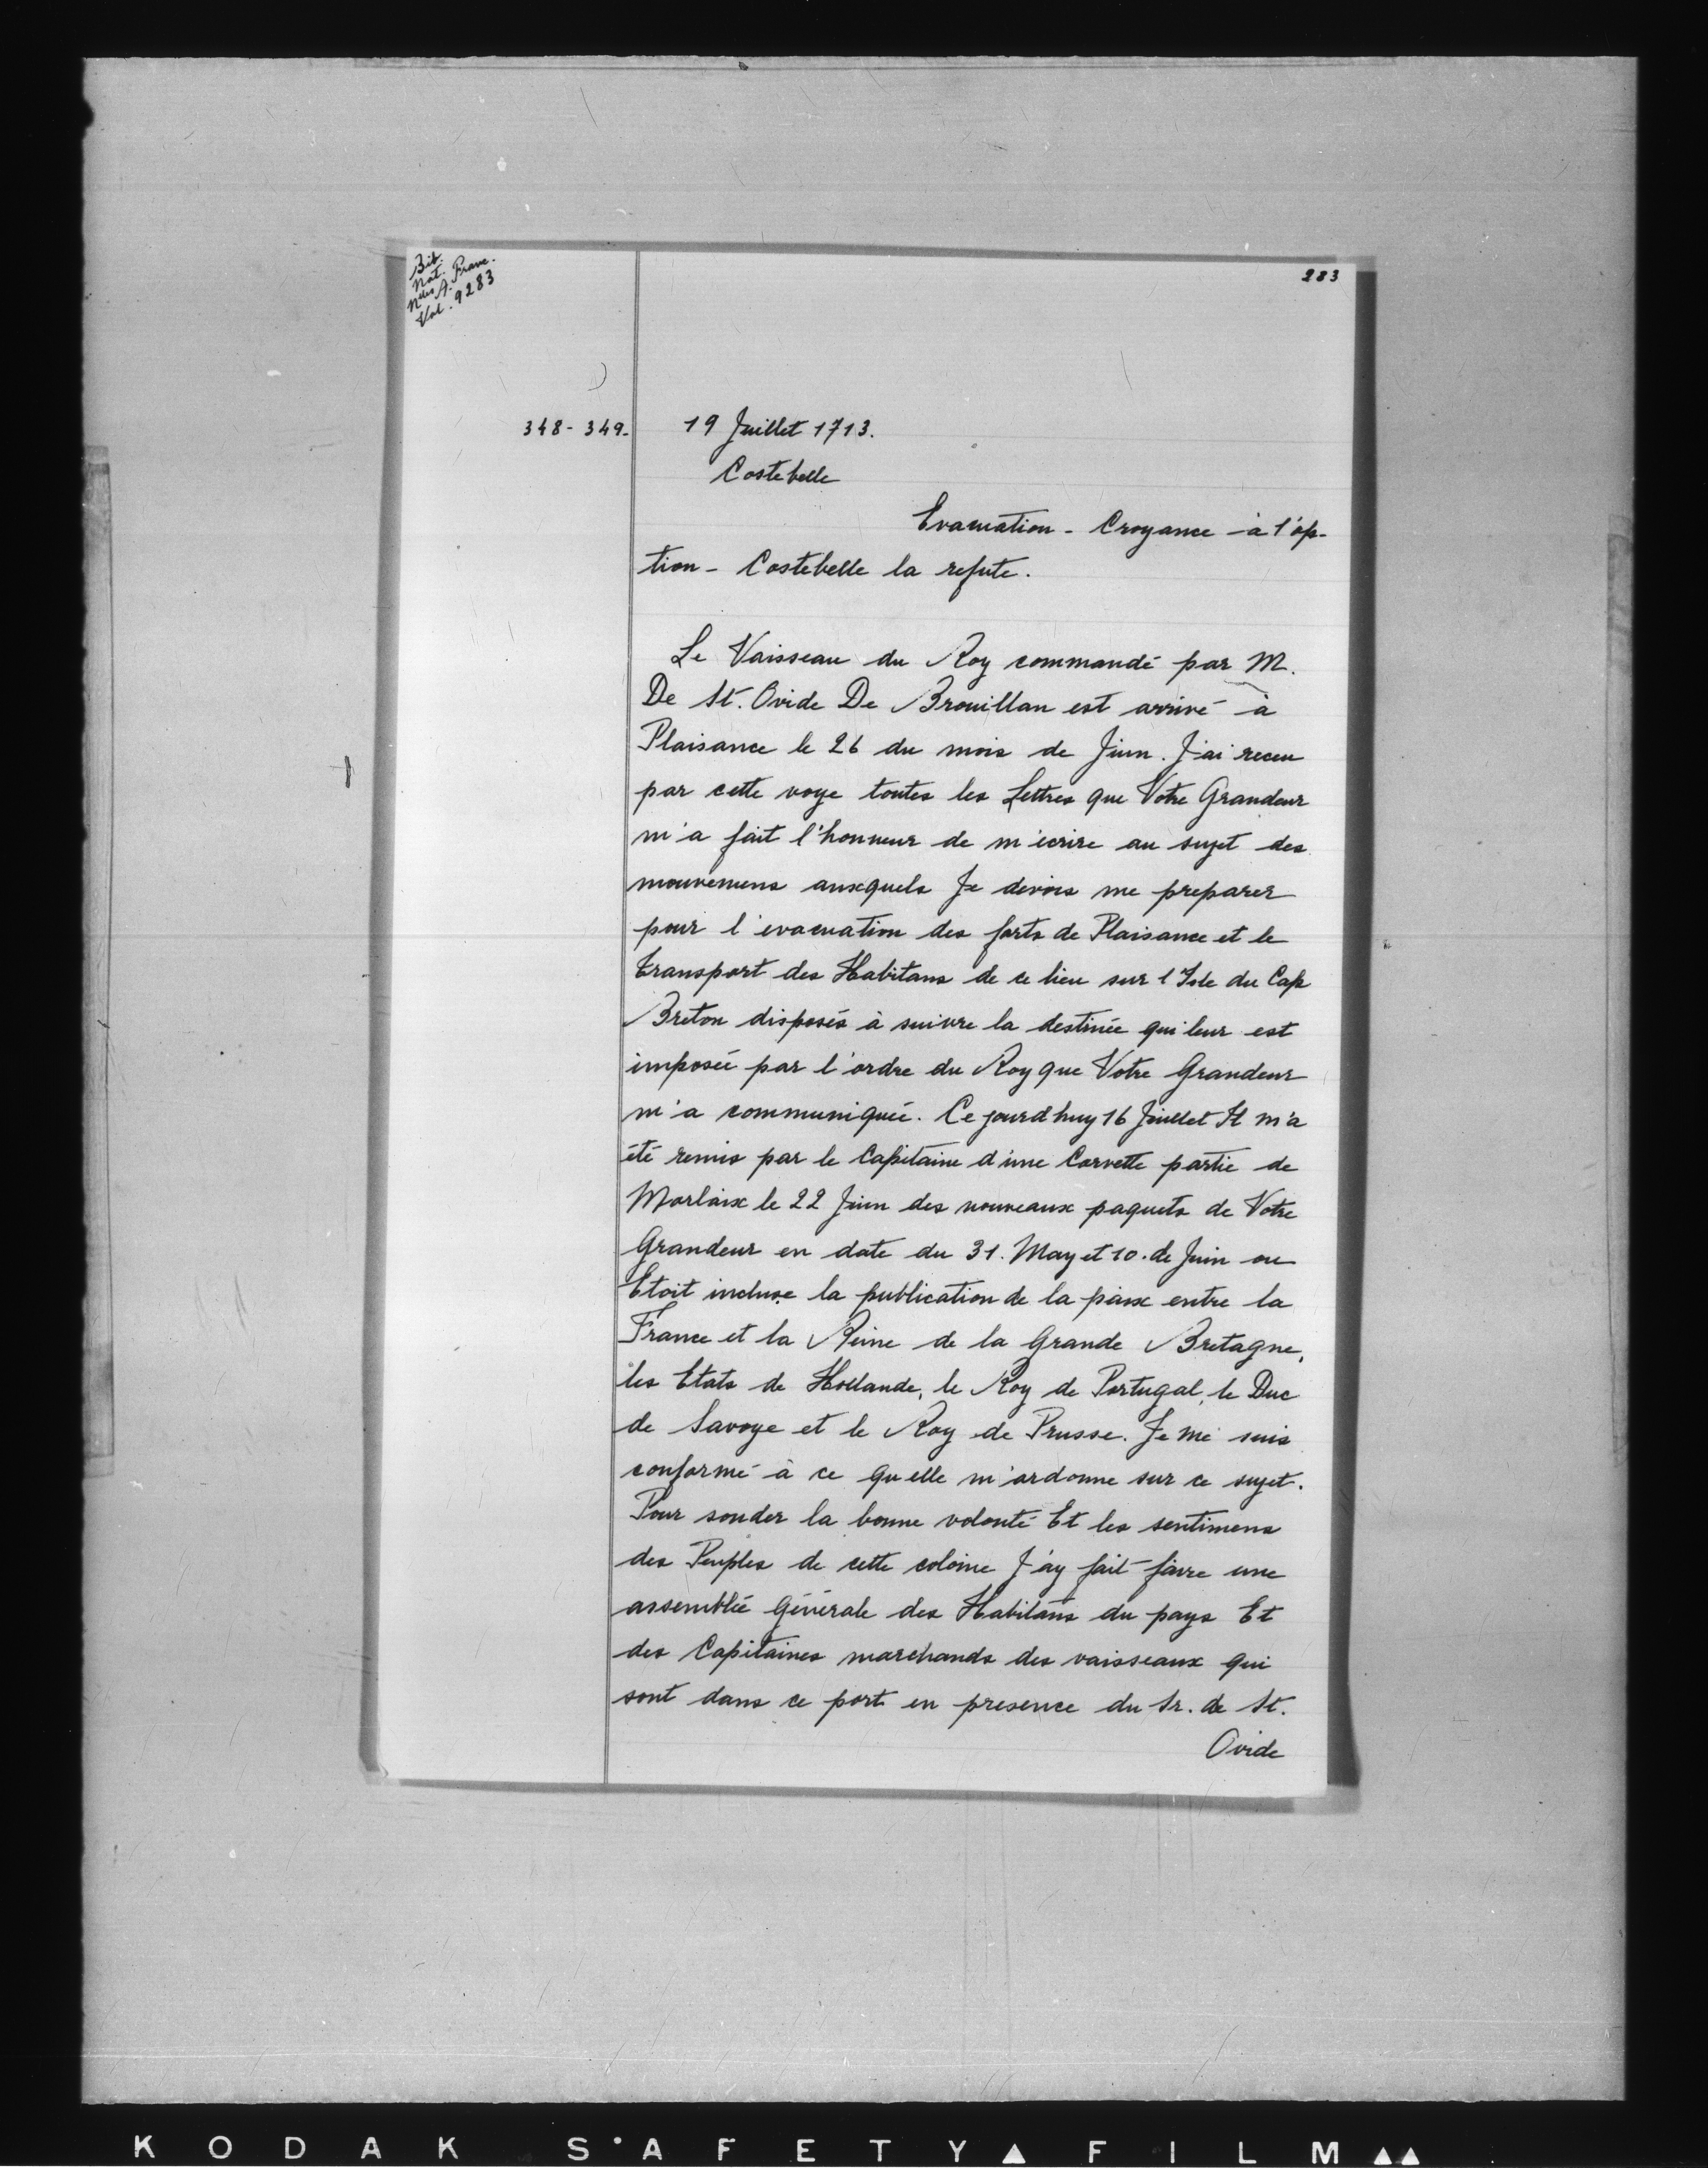 Bib.
Nat.
Nlles A. Franc.
Vol. 9283
283
348-349. 19 Juillet 1713.
Costebelle
Evacuation - Croyance à l'op-
tion - Costebelle la refute.
Le Vaisseau du Roy commandé par M.
De St. Ovide De Brouillan est arrivé à
Plaisance le 26 du mois de Juin. J'ai receu
par cette voye toutes les Lettres que Votre Grandeur
m'a fait l'honneur de m'écrire au sujet des
mouvemens auxquels Je devois me preparer
pour l'evacuation des forts de Plaisance et le
transport des Habitans de ce lieu sur l'Isle du Cap
Breton disposés à suivre la destinée qui leur est
imposée par l'ordre du Roy que Votre Grandeur
m'a communiquée. Ce jourd'huy 16 Juillet Il m'a
été remis par le Capitaine d'une Corvette partie de
Morlaix le 22 Juin des nouveaux paquets de Votre
Grandeur en date du 31. May et 10. de Juin ou
Etoit incluse la publication de la paix entre la
France et la Reine de la Grande Bretagne,
les Etats de Hollande, le Roy de Portugal, le Duc
de Savoye et le Roy de Prusse. Je me suis
conformé à ce qu'elle m'ordonne sur ce sujet.
Pour sonder la bonne volonté Et les sentimens
des Peuples de cette colonie J'ay fait faire une
assemblée Générale des Habitans du pays Et
des Capitaines marchands des vaisseaux qui
sont dans ce port en presence du Sr. de St.
Ovide
KODAK SAFETY FILM